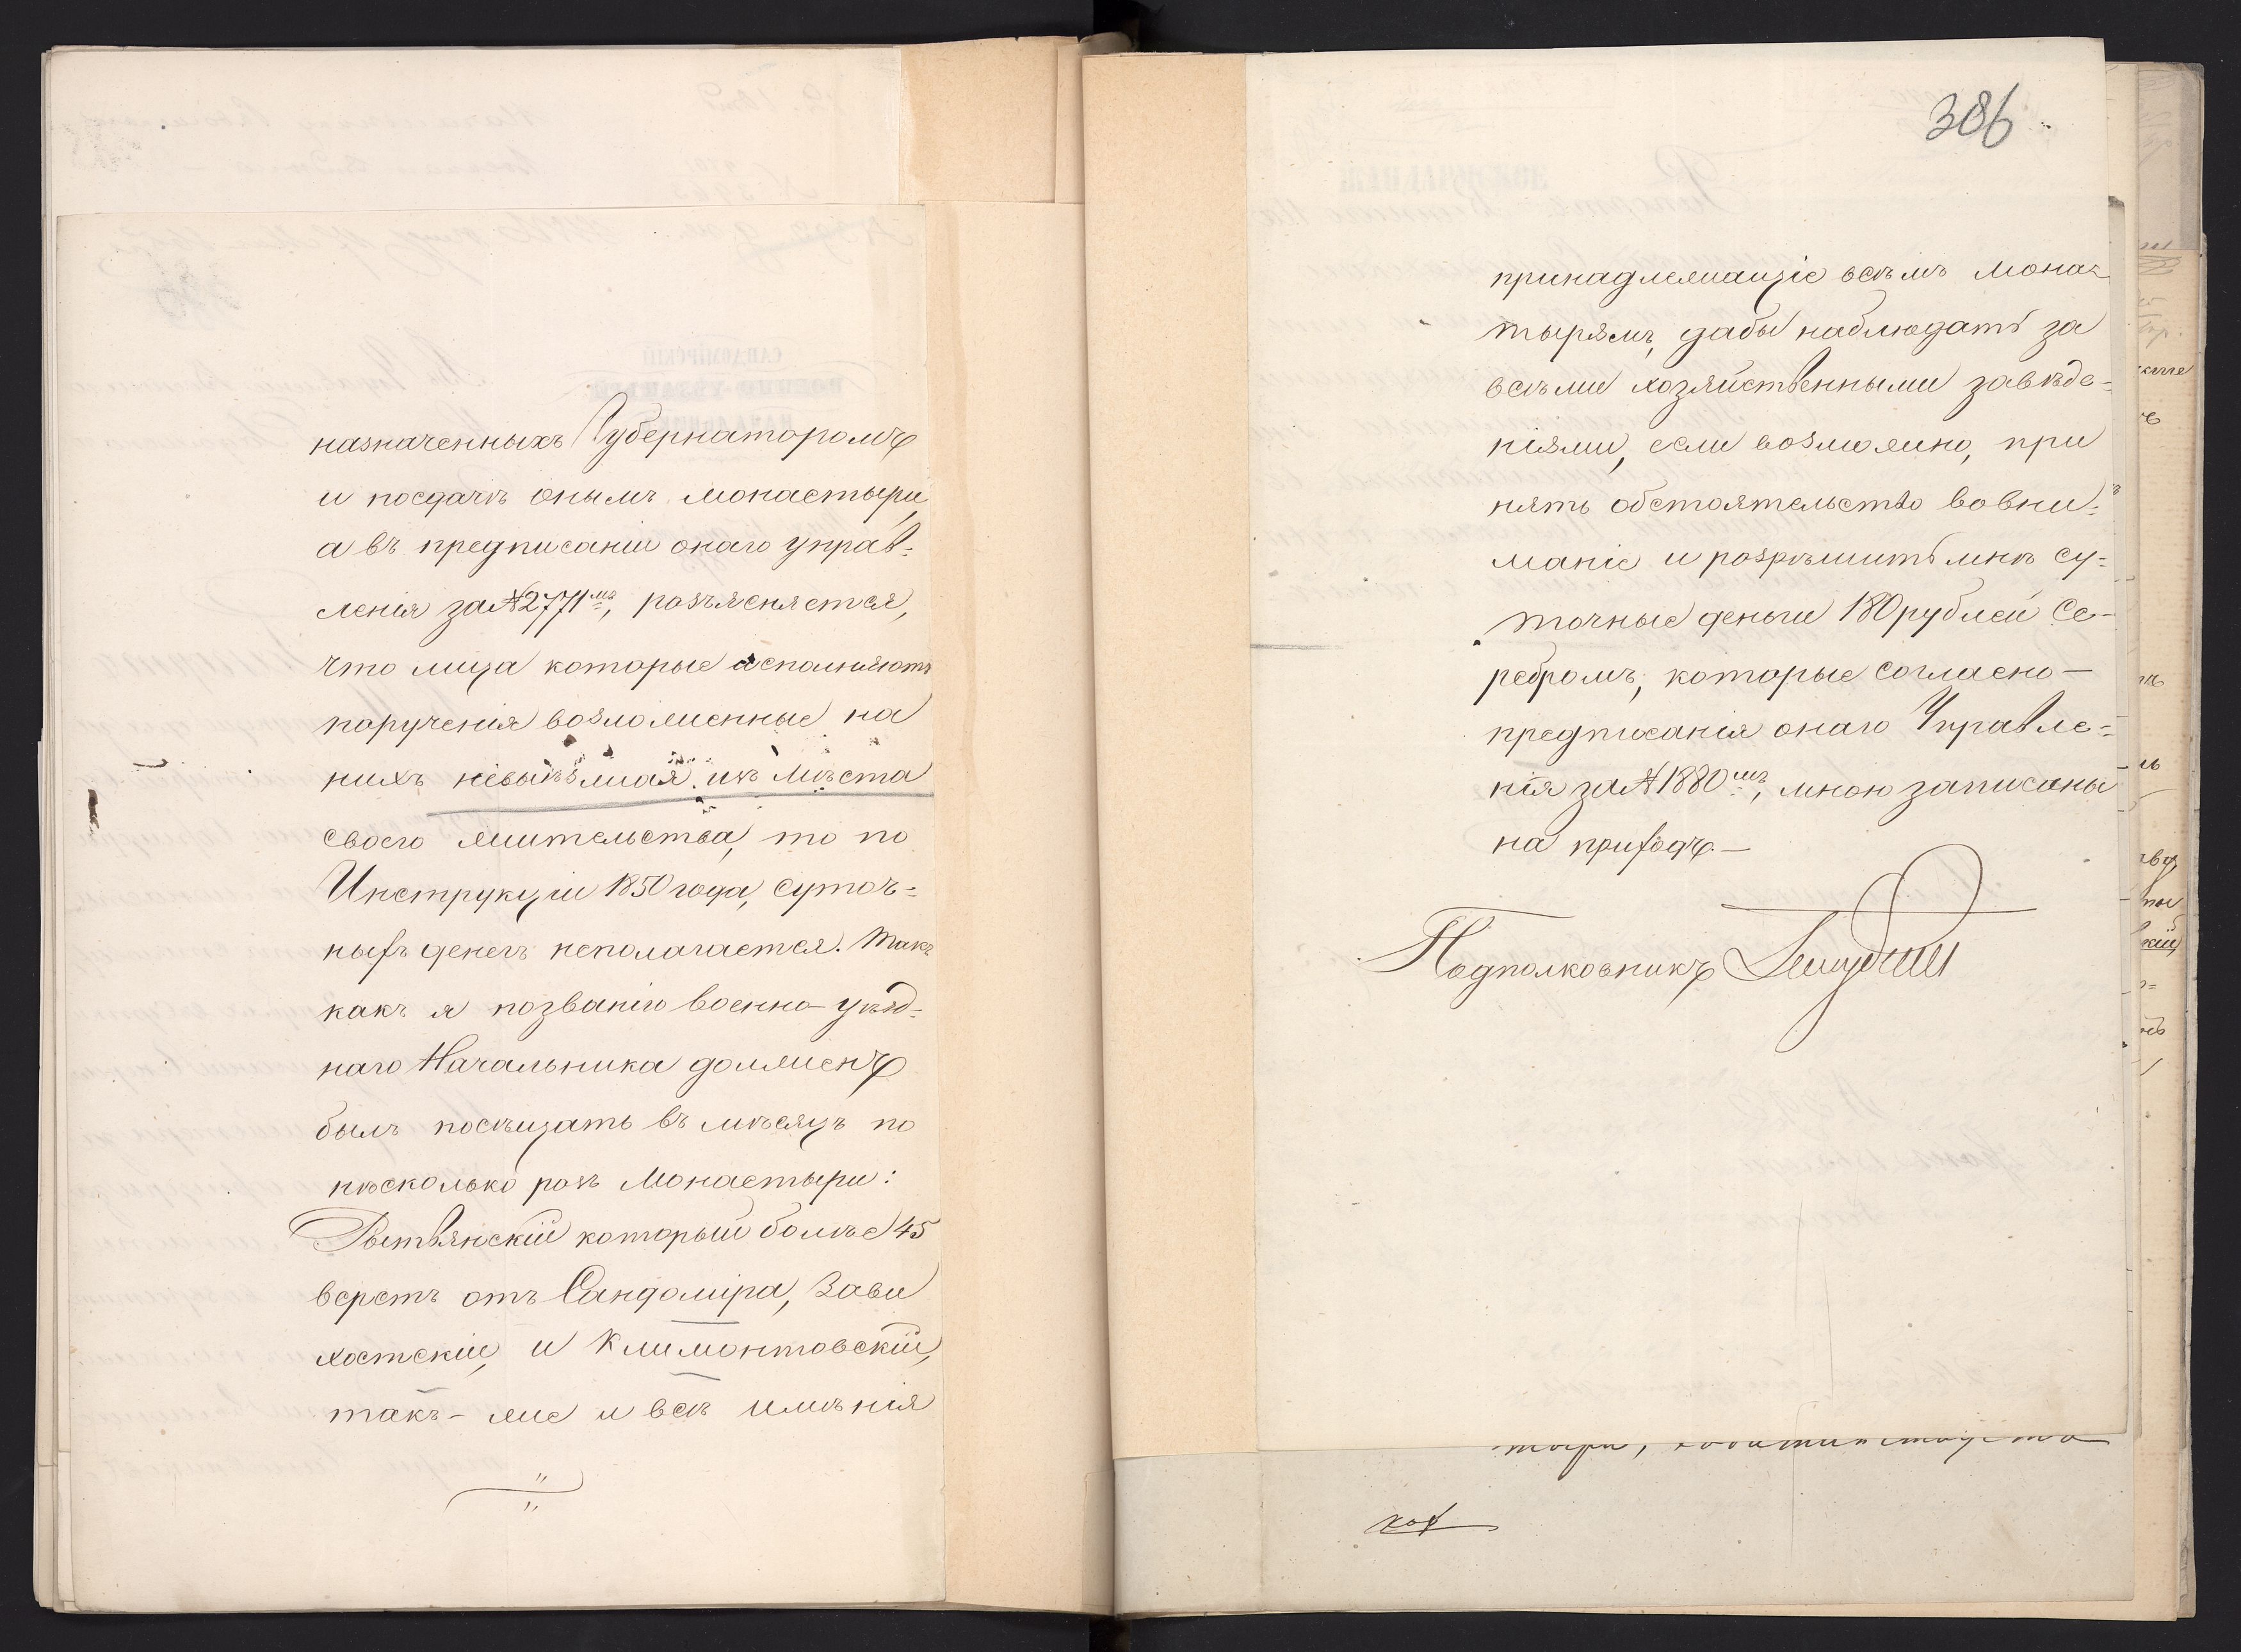 назначенныхъ Губернаторомъ
и посдачѣ онымъ монастыри,
а въ предписаніи онаго управ=
ленія за №2771мъ, розъясняется,
что лица которые исполняютъ
порученія возложенные на
нихъ невыѣзжая изъ мѣста
своего жительства, то по
Инструкціи 1850 года, суточ=
ныхъ денегъ неполагается. Такъ
какъ я позванію военно-уѣзд=
наго Начальника долженъ
былъ посѣщать въ мѣсяцъ по
нѣсколько розъ Монастыри:
Рытвянскій который болѣе 45
верстъ отъ Сандоміра, Зави
хостскій, и Климонтовскій,
такъ-же и всѣ имѣнія
386
принадлежащіе всѣмъ монас
тырямъ, дабы наблюдать за
всѣми хозяйственными завѣде=
ніями, если возможно, при
нять обстоятельство вовни=
маніе и розрѣшить мнѣ су=
точные деньги 180 рублей се-
ребромъ, которые согласно-
предписанія онаго Управле=
нія за №1880мъ, мною записаны
на приходъ.—
Подполковникъ